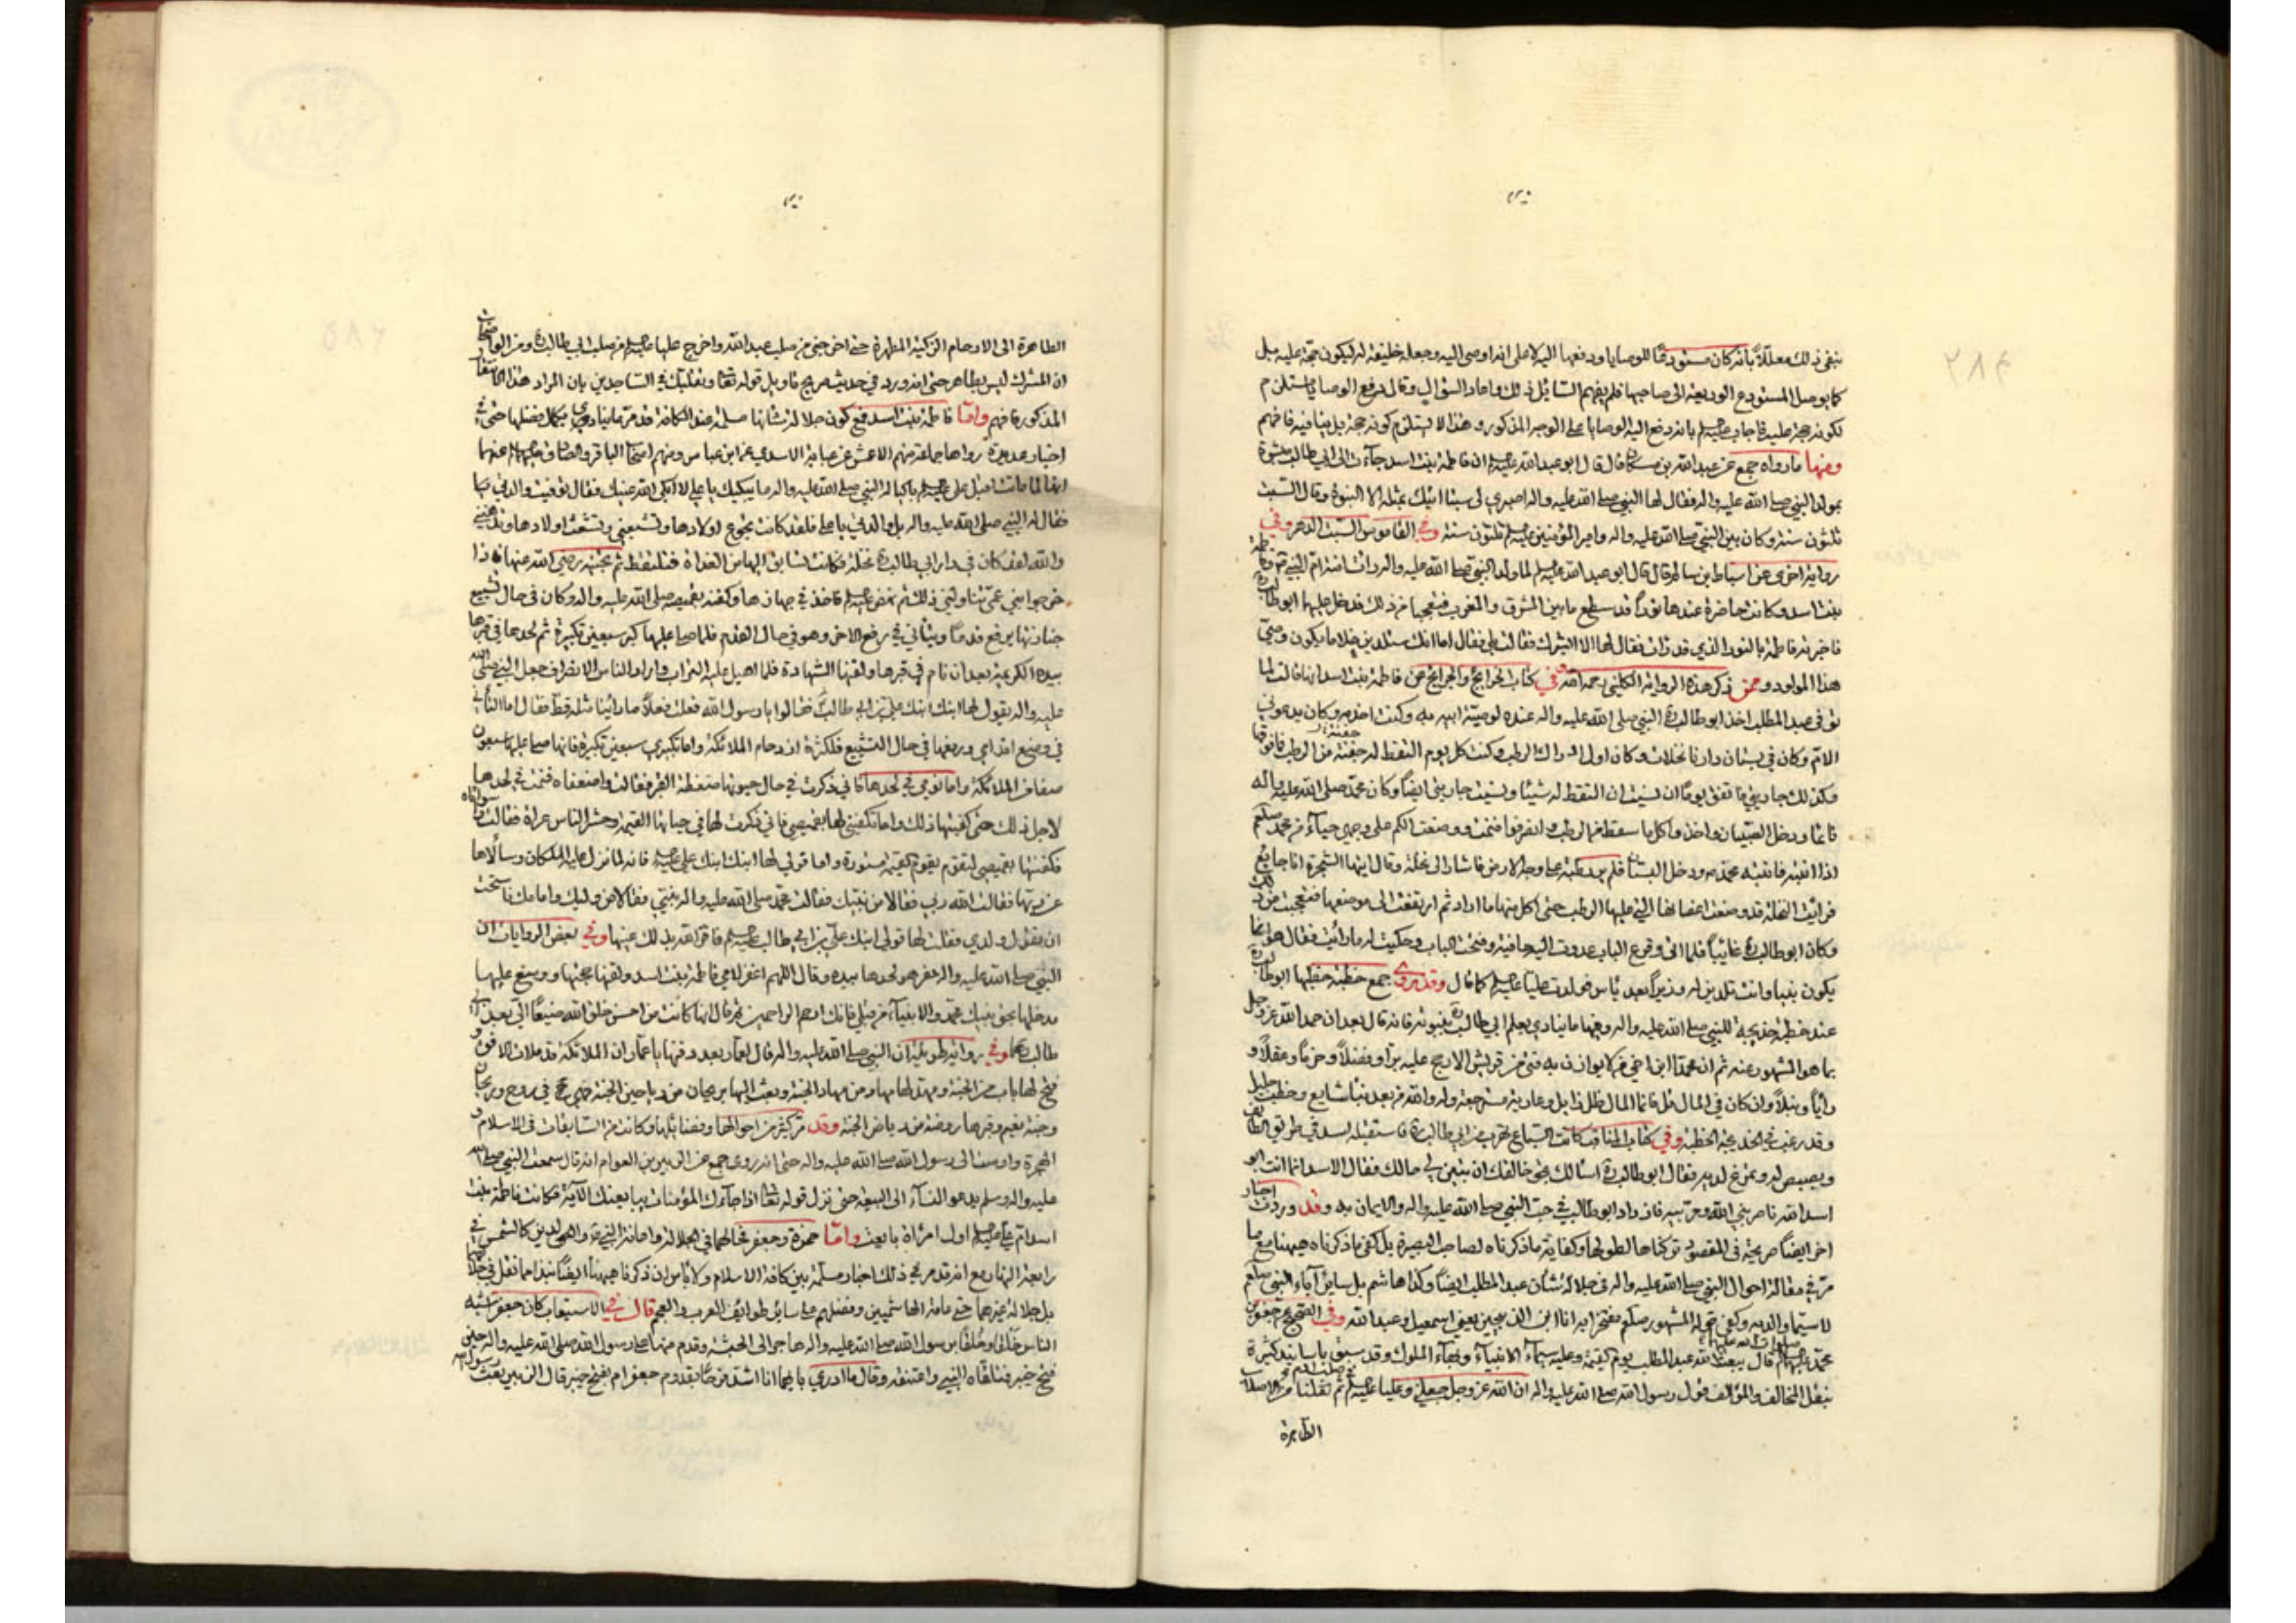 ينفي ذلك معللاً بأنه كان مستودعًا للوصايا ودفعها اليه لا على انه اوصى اليه وجعله خليفة له ليكون حجة عليه بل
كما يوصل المستودع الوديعة الى صاحبها فلم يفهم السائل ذلك واعاد السؤال وقال دفع الوصايا مستلزم
لكونه حجة عليه فاجاب بانه دفع اليه الوصايا على الوجه المذكور وهذا لا يستلزم كونه حجة بل ينافيه فافهم
ومنها ما رواه جمع عن عبدالله بن مسكان قال قال ابو عبدالله ان فاطمة بنت اسد جاءت الى ابي طالب مبشرة
بمولد النبي صلى الله عليه واله فقال لها اصبري لي سبتا اتيك بمثله الا النبوة وقال السبت
ثلثون سنة وكان بين النبي صلى الله عليه واله وامير المؤمنين ثلثون سنة وفي القاموس السبت الدهر وفي
رواية اخرى عن اسباط بن سالم قال قال ابو عبدالله لما ولد النبي صلى الله عليه واله
بنت اسد وكانت حاضرة عندها نورا قد سطع ما بين المشرق والمغرب فتعجبا من ذلك فدخل عليها ابو طالب
فاخبرته فاطمة بالنور الذي قد رأت فقال لها الا ابشرك فقالت بلى فقال اما انك ستلدين غلاما يكون وصي
هذا المولود وممن ذكر هذه الرواية الكليني رحمه الله وفي كتاب الخرائج والجرائح عن فاطمة بنت اسد انها قالت لما
توفي عبد المطلب اخذ ابو طالب النبي صلى الله عليه واله عنده لوصية ابيه به وكنت اخدمه وكان يدعوني
الام وكان في بستان دارنا نخلات وكان اول ادراك الرطب وكنت كل يوم التقط له حفنة من الرطب فما فوقها
وكذلك جاريتي فاتفق يوما ان نسيت ان التقط له شيئا ونسيت جاريتي ايضا وكان محمد صلى الله عليه واله
نائما ودخل الصبيان واخذوا كل ما سقط من الرطب وانصرفوا فنمت ووضعت الكم على وجهي حياء من محمد صلعم
اذا انتبه فانتبه محمد ودخل البستان فلم ير رطبة على وجه الارض فاشار الى نخلة وقال ايتها الشجرة انا جائع
فرأيت النخلة قد وضعت اغصانها التي عليها الرطب حتى اكل منها ما اراد ثم ارتفعت الى موضعها فتعجبت من ذلك
وكان ابو طالب غائبا فلما اتى وقرع الباب عدوت اليه حافية وفتحت الباب وحكيت له ما رأيت فقال هو انما
يكون نبيا وانت تلدين له وزيرا بعد يأس فولدت عليا كما قال وقد روى جمع خطبة خطبها ابو طالب
عند خطبة خديجة للنبي صلى الله عليه واله وفيها ما ينادي بعلم ابي طالب بنبوته فانه قال بعد ان حمد الله عز وجل
بما هو المشهور عنه ثم ان محمدا ابن اخي من لا يوازن به فتى من قريش الا رجح عليه برا وفضلا وحزما وعقلا و
رأيا ونبلا وان كان في المال قل فانما المال ظل زايل وعارية مسترجعة وله والله من بعد نبأ شايع وخطب جليل
وقد رغب في خديجة الخطبة وفي كتاب المناقب كانت السباع تهرب من ابي طالب فاستقبله اسد في طريق الطائف
وبصبص له وتمرغ لديه فقال ابو طالب اسألك بحق خالقك ان تبين لي حالك فقال الاسد انما انت ابو
اسد الله ناصر نبي الله ومربيه فازداد ابو طالب في حب النبي صلى الله عليه واله والايمان به وقد وردت اخبار
اخر ايضا صريحة في المقصود تركناها لطولها وكفاية ما ذكرناه لصاحب البصيرة بل كفى ما ذكرناه هيهنا مع ما
مر في مقالة احوال النبي صلى الله عليه واله في جلالة شأن عبد المطلب ايضا وكذا هاشم بل سائر آباء النبي صلعم
لا سيما والديه وكفى قوله المشهور مفتخرا به انا ابن الذبيحين يعني اسمعيل وعبدالله وفي الصحيح عن جعفر بن
محمد قال يبعث الله عبد المطلب يوم القيمة وعليه سيماء الانبياء وبهاء الملوك وقد سبق باسانيد كثيرة
بنقل المخالف والمؤالف قول رسول الله صلى الله عليه واله ان الله عز وجل جعلني وعليا ثم نقلنا من الاصلاب
الطاهرة
الطاهرة الى الارحام الزكية المطهرة حتى اخرجني من صلب عبدالله واخرج عليا من صلب ابي طالب ومن الواضحات
ان المشرك ليس بطاهر حتى انه ورد في حديث صريح تأويل قوله تعالى وتقلبك في الساجدين بان المراد هذا الانتقال
المذكور فافهم واما فاطمة بنت اسد فمع كون جلالة شانها مسلمة عند الكافة قد مر ما ينادي بكمال فضلها حتى في
اخبار عديدة رواها جماعة منهم الاعمش عن عباية الاسدي عن ابن عباس ومنهم اصحاب الباقر والصادق عنهما
انها لما ماتت اقبل علي باكيا له النبي صلى الله عليه واله ما يبكيك يا علي لا ابكى الله عينيك فقال توفيت والدتي
فقال له النبي صلى الله عليه واله بل والدتي يا علي فلقد كانت تجوع اولادها وتشبعني وتشعث اولادها وتدهنني
والله لقد كان في دار ابي طالب نخلة فكانت تسابق اليها من الغداة فتلتقط ثم تجنيه رضي الله عنها فاذا
خرجوا بني عمي تناولني ذلك ثم نهض فاخذ في جهازها وكفنه بقميصه صلى الله عليه واله وكان في حال تشييع
جنازتها يرفع قدما ويتأنى في رفع الاخر وهو في حال القدم فلما صلى عليها كبر سبعين تكبيرة ثم لحدها في قبرها
بيده الكريمة بعد ان نام في قبرها ولقنها الشهادة فلما اهيل عليه التراب واراد الناس الانصراف جعل النبي صلى الله
عليه واله يقول لها ابنك ابنك علي بن ابي طالب فقالوا يا رسول الله فعلت فعلا ما رأينا مثله قط فقال اما التأني
في وضع اقدامي ورفعها في حال التشييع فلكثرة ازدحام الملائكة واما تكبيري سبعين تكبيرة فانها صلى عليها سبعون
صفا من الملائكة واما نومي في لحدها فاني ذكرت في حال حيوتها ضغطة القبر فقالت واضعفاه فنمت في لحدها
لاجل ذلك حتى كفيتها ذلك واما تكفيني لها بقميصي فاني ذكرت لها في حياتها القيمة وحشر الناس عراة فقالت واسوأتاه
فكفنتها بقميصي لتقوم يوم القيمة مستورة واما قولي لها ابنك ابنك علي فانه لما نزل عليها الملكان وسألاها
عن ربها فقالت الله ربي فقالا من نبيك فقالت محمد صلى الله عليه واله نبيي فقالا من وليك وامامك فاستحت
ان تقول ولدي فقلت لها قولي ابنك علي بن ابي طالب فاقر الله بذلك عينها وفي بعض الروايات ان
النبي صلى الله عليه واله حفر هو لحدها بيده وقال اللهم اغفر لامي فاطمة بنت اسد ولقنها حجتها ووسع عليها
مدخلها بحق نبيك محمد والانبياء من قبلي فانك ارحم الراحمين ثم قال انها كانت من احسن خلق الله صنيعا الي بعد ابي
طالب وفي رواية طويلة ان النبي صلى الله عليه واله قال لعمار بعد دفنها يا عمار ان الملائكة قد ملأت الافق و
فتح لها باب من الجنة ومهد لها مهاد من مهاد الجنة وبعث اليها بريحان من رياحين الجنة فهي في روح وريحان
وجنة نعيم وقبرها روضة من رياض الجنة وقد مر كثير من احوالها وفضائلها وكانت من السابقات في الاسلام و
الهجرة وامست الى رسول الله صلى الله عليه واله حتى انه روى جمع عن الزبير بن العوام انه قال سمعت النبي صلى الله
عليه واله وسلم يدعو النساء الى البيعة حتى نزل قوله تعالى اذا جاءك المؤمنات يبايعنك الآية فكانت فاطمة بنت
اسد ام علي اول امرأة بايعت واما حمزة وجعفر فحالهما في الجلالة واعانة النبي واهل الدين كالشمس في
رابعة النهار مع انه قد مر في ذلك اخبار مسلمة بين كافة الاسلام ولا بأس ان ذكرنا هيهنا ايضا نبذا مما نقل في جلالتهما
بل جلالة غيرهما حتى عامة الهاشميين وفضلهم على سائر طوائف العرب والعجم قال في الاستيعاب كان جعفر اشبه
الناس خلقا وخلقا برسول الله صلى الله عليه واله هاجر الى الحبشة وقدم منها على رسول الله صلى الله عليه واله حين
فتح خيبر فتلقاه النبي واعتنقه وقال ما ادري بايهما انا اشد فرحا بقدوم جعفر ام بفتح خيبر قال الزبير بعث رسول الله